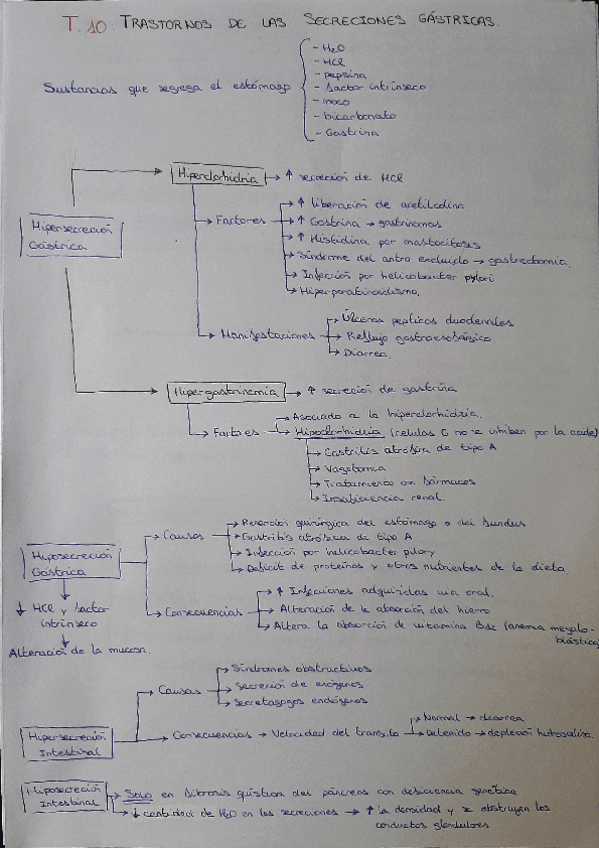 T.10. TRASTORNOS DE LAS SECRECIONES GÁSTRICAS.
Sustancias que segrega el estómago
- H2O
- HCl
- pepsina
- factor intrínseco
- moco
- bicarbonato
- Gastrina
Hipersecreción Gástrica
Hiperclorhidria → ↑ secreción de HCl
→ Factores
→ ↑ liberación de acetilcolina
→ ↑ Gastrina → gastrinomas
→ ↑ Histidina por mastocitosis
→ Síndrome del antro excluido → gastrectomía.
→ Infección por helicobacter pylori
→ Hiperparatiroidismo.
→ Manifestaciones
→ Úlceras pépticas duodenales
→ Reflujo gastroesofágico
→ Diarrea.
Hipergastrinemia → ↑ secreción de gastrina
→ Factores
→ Asociado a la hiperclorhidria.
→ Hipoclorhidria (células G no se inhiben por la acidez)
→ Gastritis atrófica de tipo A
→ Vagotomía
→ Tratamiento con fármacos
→ Insuficiencia renal.
Hiposecreción Gástrica
→ Causas
→ Resección quirúrgica del estómago o del fundus
→ Gastritis atrófica de tipo A
→ Infección por helicobacter pilory
→ Déficit de proteínas y otros nutrientes de la dieta
↓ HCl y factor intrínseco
Alteración de la mucosa.
→ Consecuencias
→ ↑ Infecciones adquiridas vía oral.
→ Alteración de la absorción del hierro
→ Altera la absorción de vitamina B12 (anemia megalo-
blástica)
Hipersecreción Intestinal
→ Causas
→ Síndromes obstructivos
→ Secreción de exógenos
→ Secretagogos endógenos
→ Consecuencias → Velocidad del tránsito
→ Normal → diarrea
→ Detenido → depleción hidrosalina.
Hiposecreción Intestinal
→ Solo en fibrosis quística del páncreas con deficiencia genética
→ ↓ cantidad de H2O en las secreciones → ↑ la densidad y se obstruyen los
conductos glandulares